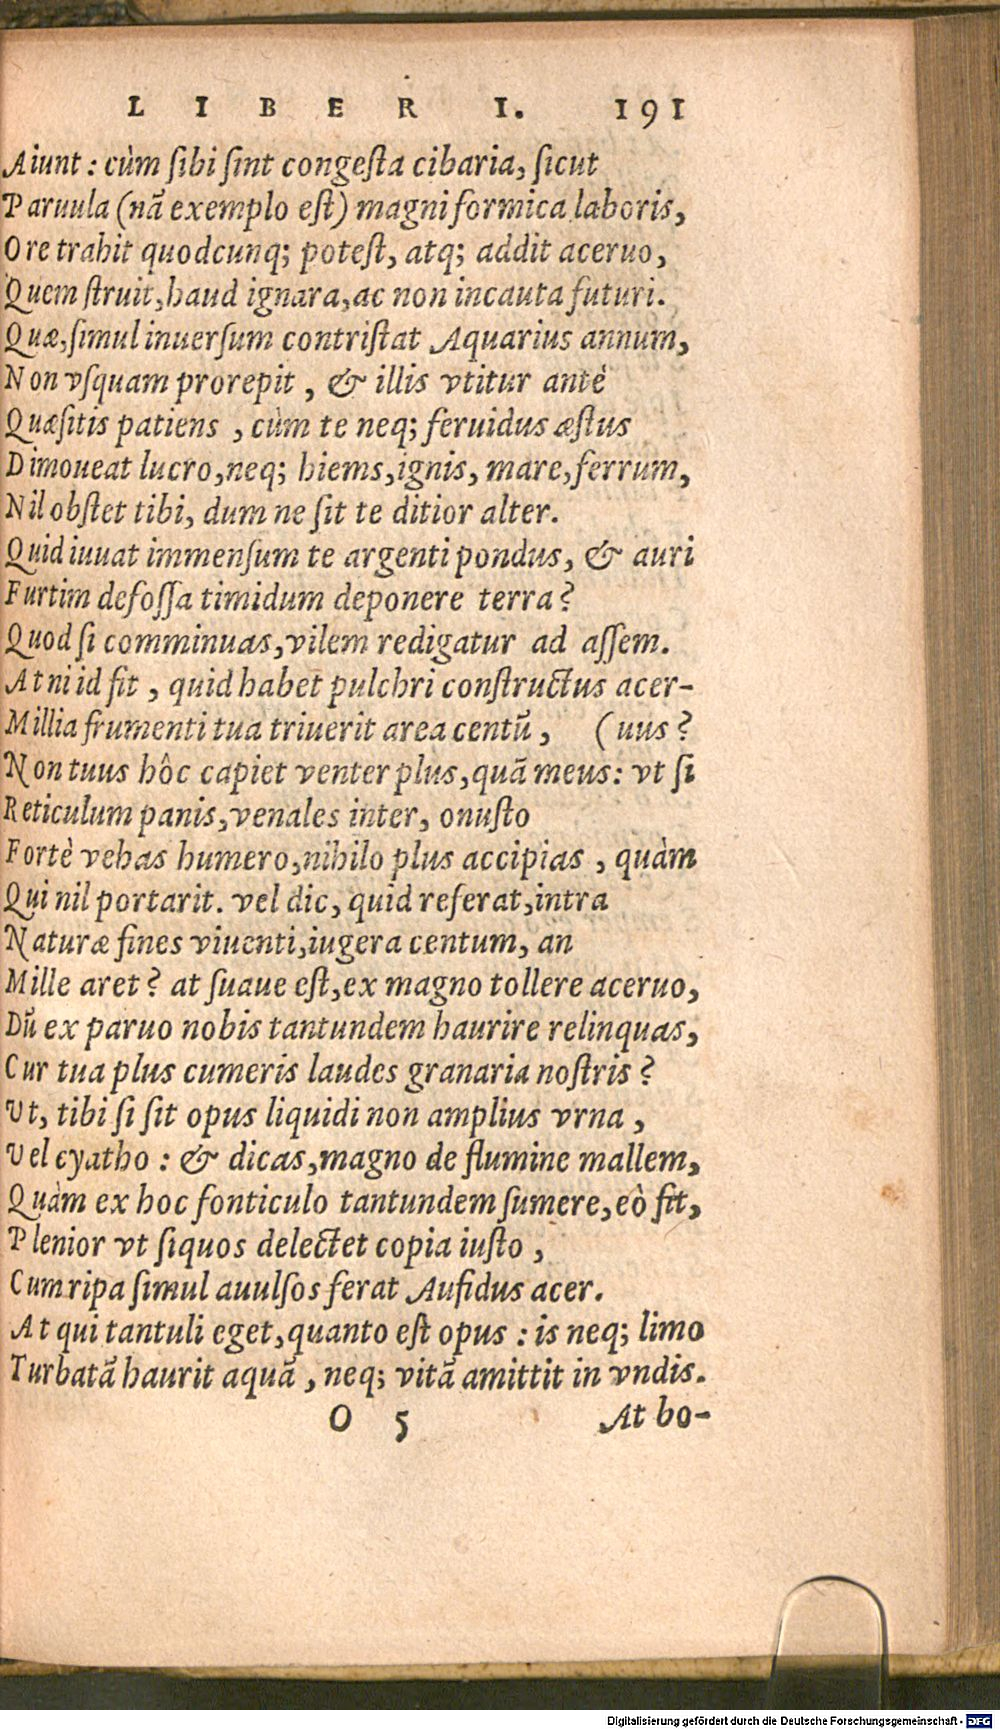 LIBER I. 191
Aiunt: cùm ſibi ſint congeſta cibaria, ſicut
Paruula (nã exemplo eſt) magni formica laboris,
Ore trahit quodcunq; poteſt, atq; addit aceruo,
Quem ſtruit, haud ignara, ac non incauta futuri.
Quæ, ſimul inuerſum contriſtat Aquarius annum,
Non vſquam prorepit, & illis vtitur antè
Quæſitis patiens, cùm te neq; feruidus æſtus
Dimoueat lucro, neq; hiems, ignis, mare, ferrum,
Nil obſtet tibi, dum ne ſit te ditior alter.
Quid iuuat immenſum te argenti pondus, & auri
Furtim defoſſa timidum deponere terra?
Quod ſi comminuas, vilem redigatur ad aſſem.
At ni id fit, quid habet pulchri conſtructus acer-
Millia frumenti tua triuerit area centũ, (uus?
Non tuus hôc capiet venter plus, quã meus: vt ſi
Reticulum panis, venales inter, onuſto
Fortè vehas humero, nihilo plus accipias, quàm
Qui nil portarit. vel dic, quid referat, intra
Naturæ fines viuenti, iugera centum, an
Mille aret? at ſuaue eſt, ex magno tollere aceruo,
Dũ ex paruo nobis tantundem haurire relinquas,
Cur tua plus cumeris laudes granaria noſtris?
Vt, tibi ſi ſit opus liquidi non amplius vrna,
Vel cyatho: & dicas, magno de flumine mallem,
Quàm ex hoc fonticulo tantundem ſumere, eò fit,
Plenior vt ſiquos delectet copia iuſto,
Cum ripa ſimul auulſos ferat Aufidus acer.
At qui tantuli eget, quanto eſt opus: is neq; limo
Turbatã haurit aquã, neq; vitã amittit in vndis.
O 5 At bo-
Digitalisierung gefördert durch die Deutsche Forschungsgemeinschaft - DFG